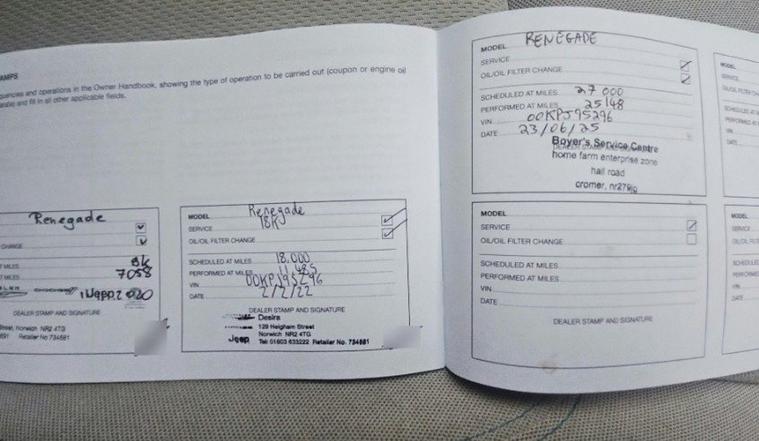 AMPS
quencies and operations in the Owner Handbook, showing the type of operation to be carried out (coupon or engine oil
and fill in all other applicable fields.
Renegade
CHANGE
T MILES 8k
MILES 7058
DEALER STAMP AND SIGNATURE
Street, Norwich NR2 4TG
691 Retailer No 734581
MODEL Renegade
SERVICE 18K
OIL/OIL FILTER CHANGE
SCHEDULED AT MILES 18.000
PERFORMED AT MILES 11485
VIN 00KPJ95296
DATE 2/2/22
DEALER STAMP AND SIGNATURE
Desira
129 Heigham Street
Norwich NR2 4TG
Jeep Tel: 01603 633222 Retailer No. 734581
MODEL RENEGADE
SERVICE
OIL/OIL FILTER CHANGE
SCHEDULED AT MILES 27 000
PERFORMED AT MILES 25148
VIN 00KPJ95296
DATE 23/06/25
Boyer's Service Centre
DEALER STAMP AND SIGNATURE
home farm enterprise zone
hall road
cromer, nr279jg
MODEL
SERVICE
OIL/OIL FILTER CHANGE
SCHEDULED AT MILES
PERFORMED AT MILES
VIN
DATE
DEALER STAMP AND SIGNATURE
MODEL
SERVICE
VIN
DATE
MODEL
SERVICE
VIN
DATE